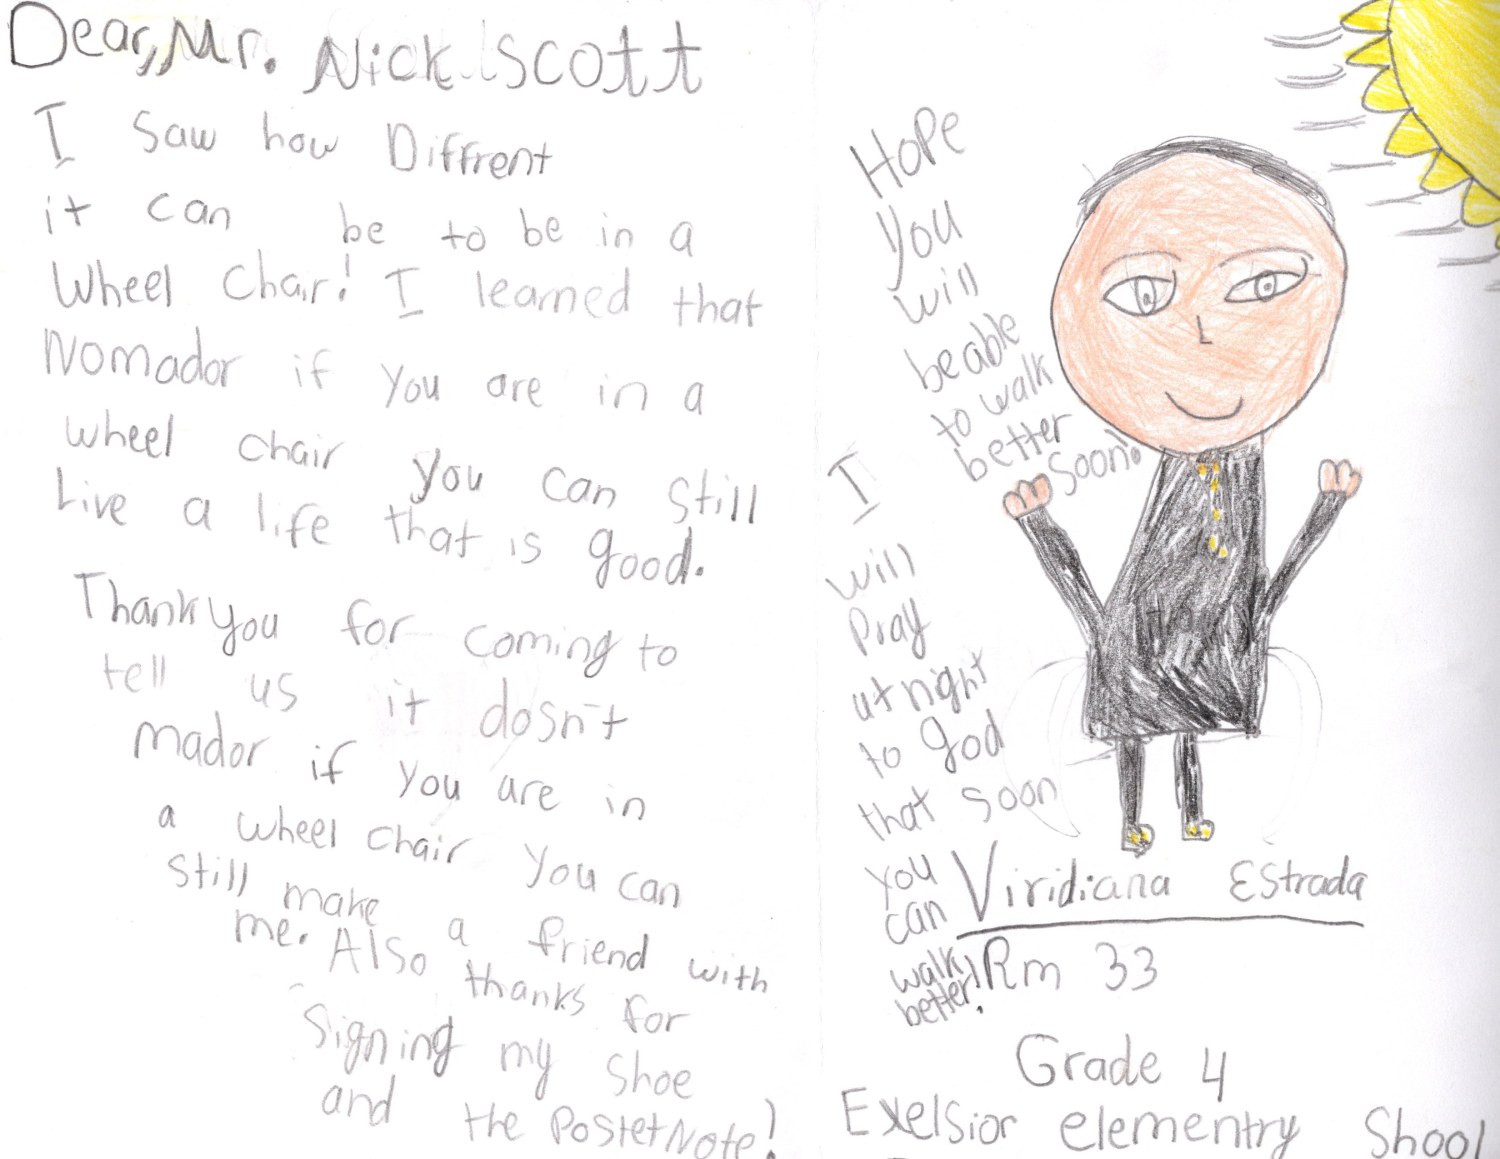 Dear, Mr. Nick Scott
I Saw how Diffrent
it can be to be in a
Wheel Chair! I learned that
Nomador if you are in a
wheel chair you can still
Live a life that is good.
Thank you for coming to
tell us it dosn't
mador if you are in
a wheel chair you can
still make a friend with
me. Also thanks for
Signing my Shoe
and the PostetNote!
Hope
you
will
be able
to walk
better
soon!
I
will
Pray
at night
to god
that soon
you
can
walk
better!
Viridiana Estrada
Rm 33
Grade 4
Exelsior elementry Shool